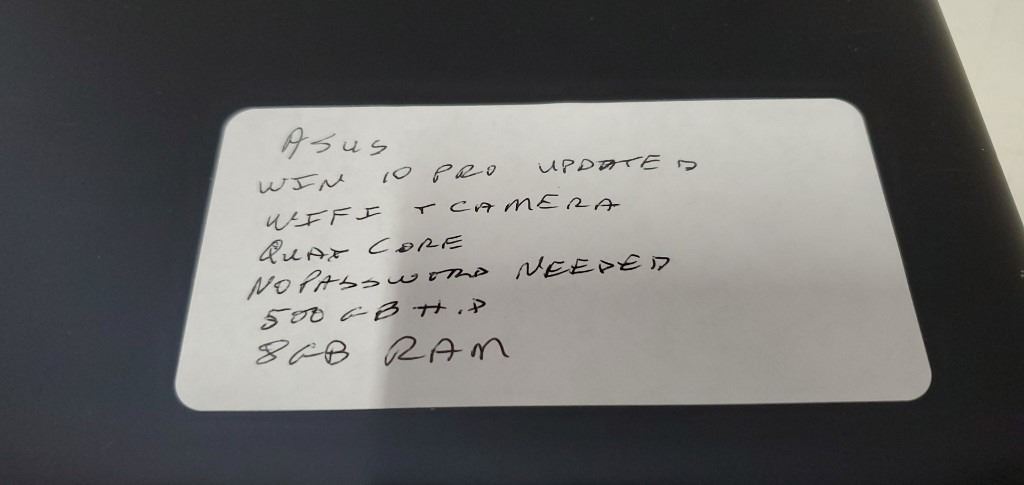 ASUS
WIN 10 PRO UPDATED
WIFI + CAMERA
QUAD CORE
NO PASSWORD NEEDED
500 GB H.D
8GB RAM